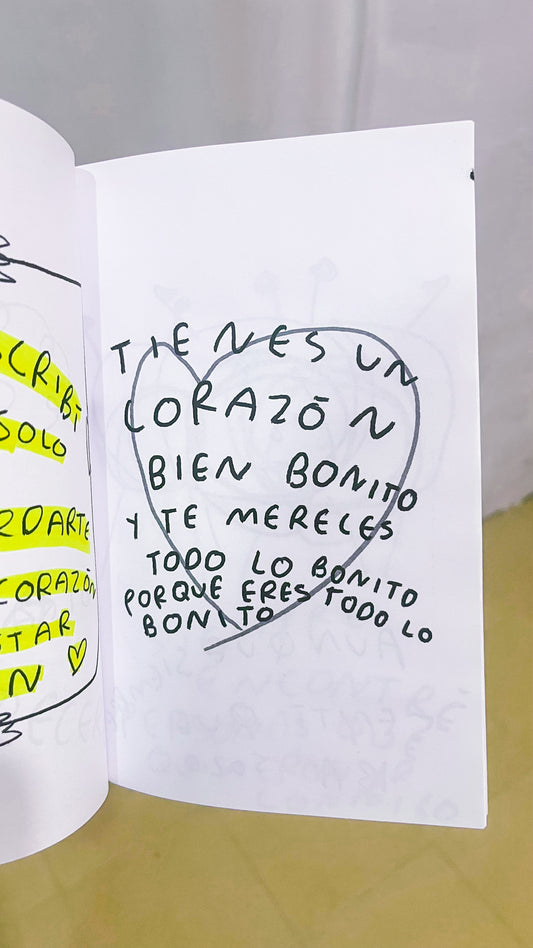 SCRIBÍ
SOLO
RDARTE
CORAZÓN
STAR
N
TIENES UN
CORAZÓN
BIEN BONITO
Y TE MERECES
TODO LO BONITO
PORQUE ERES TODO LO
BONITO